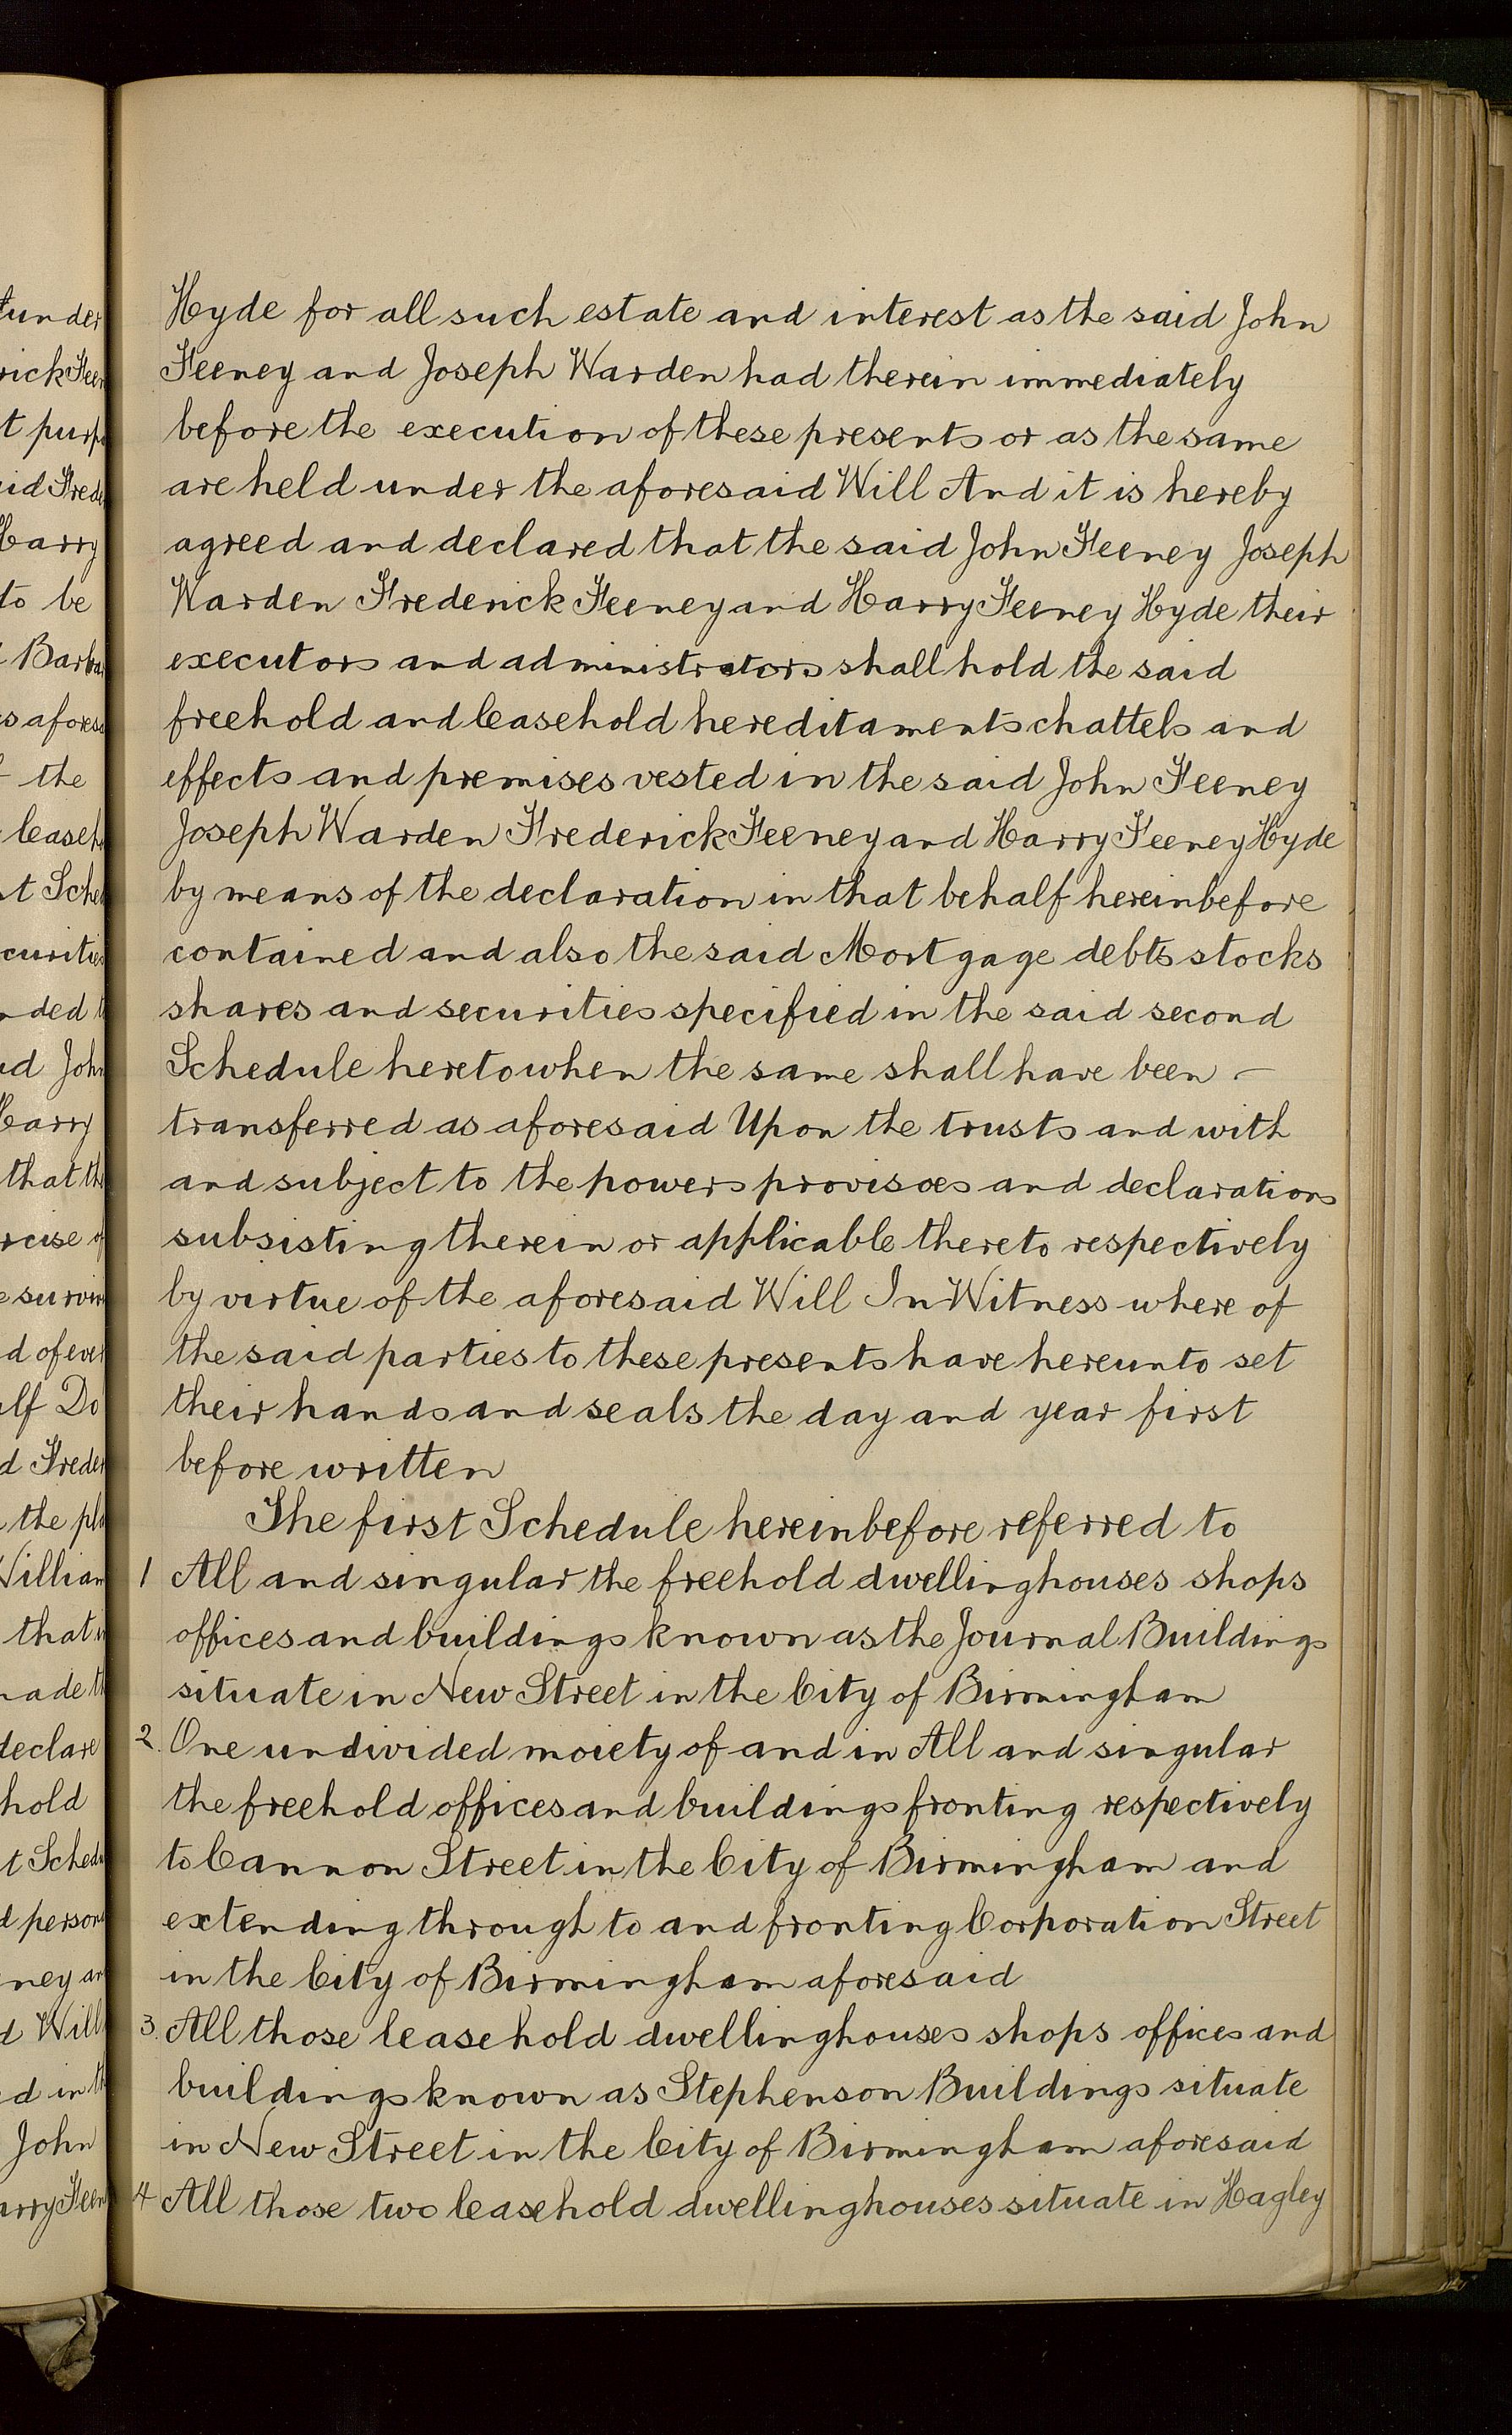 Hyde for all such estate and interest as the said John
Feeney and Joseph Warden had therein immediately
before the execution of these presents or as the same
are held under the aforesaid Will And it is hereby
agreed and declared that the said John Feeney Joseph
Warden Frederick Feeney and Harry Feeney Hyde their
executors and administrators shall hold the said
freehold and leasehold hereditaments chattels and
effects and premises vested in the said John Feeney
Joseph Warden Frederick Feeney and Harry Feeney Hyde
by means of the declaration in that behalf hereinbefore
contained and also the said Mortgage debts stocks
shares and securities specified in the said second
Schedule hereto when the same shall have been –
transferred as aforesaid Upon the trusts and with
and subject to the powers provisoes and declarations
subsisting therein or applicable thereto respectively
by virtue of the aforesaid Will In Witness where of
the said parties to these presents have hereunto set
their hands and seals the day and year first
before written
The first Schedule hereinbefore referred to
1 All and singular the freehold dwellinghouses shops
offices and buildings known as the Journal Buildings
situate in New Street in the City of Birmingham
2. One undivided moiety of and in All and singular
the freehold offices and buildings fronting respectively
to Cannon Street in the City of Birmingham and
extending through to and fronting Corporation Street
in the City of Birmingham aforesaid
3. All those leasehold dwellinghouses shops offices and
buildings known as Stephenson Buildings situate
in New Street in the City of Birmingham aforesaid
4 All those two leasehold dwellinghouses situate in Hagley